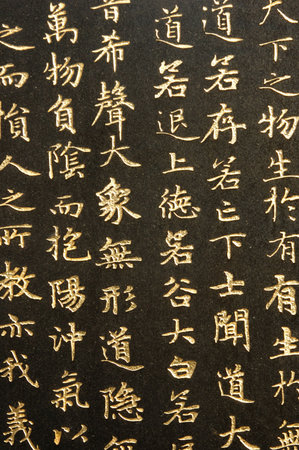 天下之物生於有有生於
道若存若亡下士聞道大
道若退上德若谷大白若
音希聲大象無形道隱無
萬物負陰而抱陽沖氣以
之而損人之所教亦我義